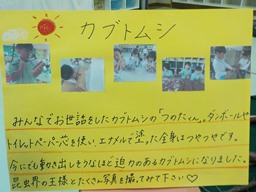 カブトムシ
みんなでお世話をしたカブトムシの「つのたくん」。ダンボールや
トイレットペーパー芯を使い、エナメルで塗った全身はつやつやです。
今にでも動き出しそうなほど迫力のあるカブトムシになりました。
昆虫界の王様とたくさん写真を撮ってみて下さい♡